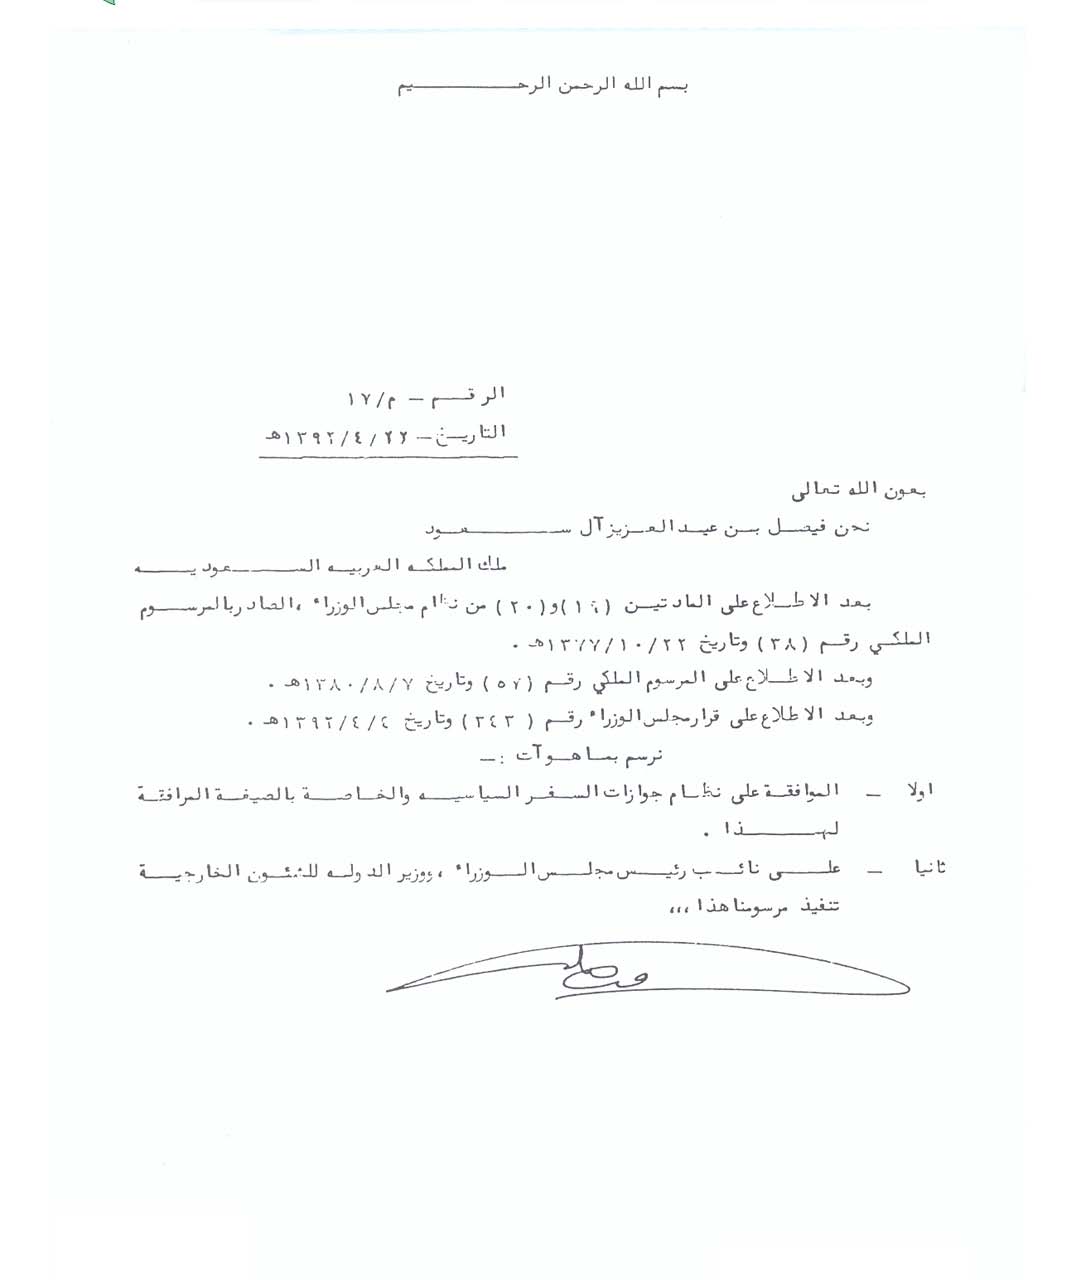 بسم الله الرحمن الرحيم
الرقم - م/١٧
التاريخ - ١٣٩٢/٤/٢٢هـ
بعون الله تعالى
نحن فيصل بن عبد العزيز آل سعود
ملك المملكه العربيه السعوديه
بعد الاطلاع على المادتين (١٩) و(٢٠) من نظام مجلس الوزراء ، الصادر بالمرسوم
الملكي رقم (٣٨) وتاريخ ١٣٧٧/١٠/٢٢هـ .
وبعد الاطلاع على المرسوم الملكي رقم (٥٧) وتاريخ ١٣٨٠/٨/٧هـ .
وبعد الاطلاع على قرار مجلس الوزراء رقم (٢٤٣) وتاريخ ١٣٩٢/٤/٤هـ .
نرسم بما هو آت :-
اولا - الموافقة على نظام جوازات السفر السياسيه والخاصة بالصيغة المرافقة
لهذا .
ثانيا - على نائب رئيس مجلس الوزراء ، ووزير الدوله للشئون الخارجية
تنفيذ مرسومنا هذا ،،،